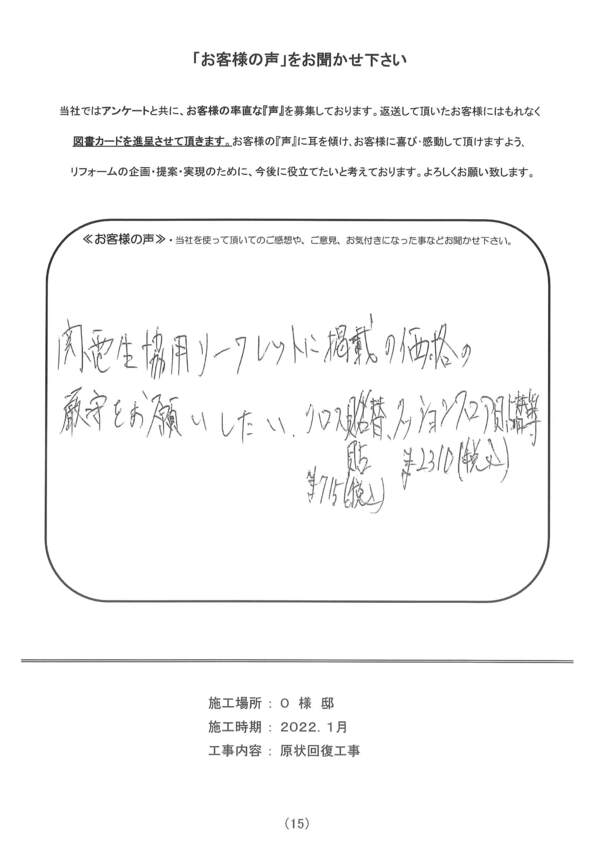 「お客様の声」をお聞かせ下さい
当社ではアンケートと共に、お客様の率直な『声』を募集しております。返送して頂いたお客様にはもれなく
図書カードを進呈させて頂きます。お客様の『声』に耳を傾け、お客様に喜び・感動して頂けますよう、
リフォームの企画・提案・実現のために、今後に役立てたいと考えております。よろしくお願い致します。
≪お客様の声≫・当社を使って頂いてのご感想や、ご意見、お気付きになった事などお聞かせ下さい。
関電生協用リーフレットに掲載の価格の
厳守をお願いしたい、クロス貼替、クッションフロア貼替等
貼
¥715(税込)
¥2310(税込)
施工場所 : O 様 邸
施工時期 : 2022. 1月
工事内容 : 原状回復工事
(15)